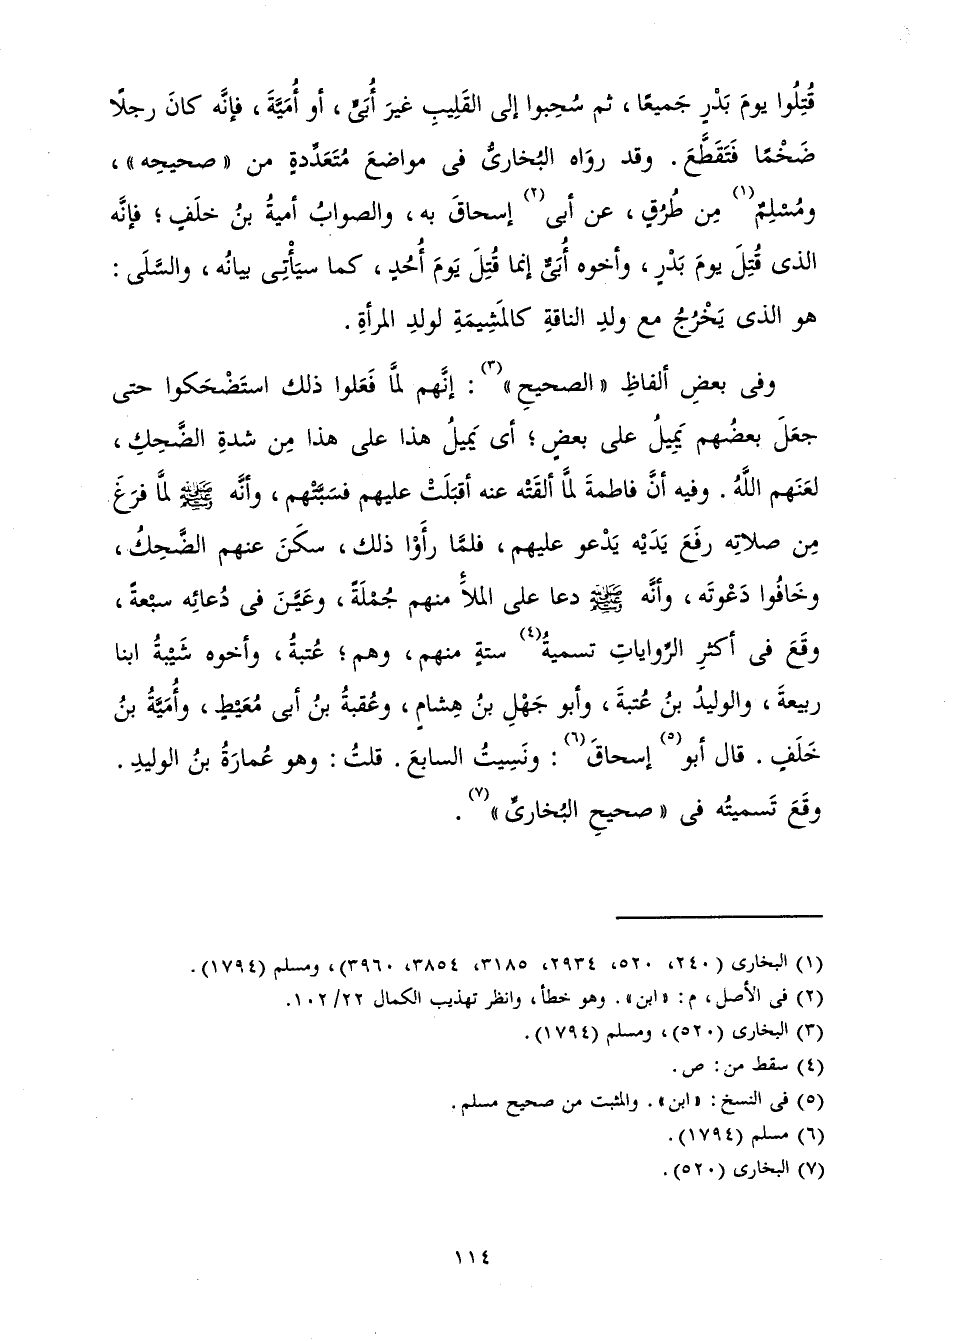 قُتِلُوا يومَ بَدْرٍ جَميعًا ، ثم سُحِبوا إلى القَلِيبِ غيرَ أُبَىٍّ ، أو أُمَيَّةَ ، فإنَّه كانَ رجلًا
ضَخْمًا فَتَقَطَّعَ . وقد روَاه البُخارىُّ فى مواضعَ مُتَعَدِّدةٍ من « صحيحِه » ،
ومُسْلِمٌ(١) مِن طُرُقٍ ، عن أبى(٢) إسحاقَ به ، والصوابُ أميةُ بنُ خلَفٍ ؛ فإنَّه
الذى قُتِلَ يومَ بَدْرٍ ، وأخوه أُبَىٌّ إنما قُتِلَ يَومَ أُحُدٍ ، كما سيَأْتِى بيانُه ، والسَّلَى :
هو الذى يَخْرُجُ مع ولدِ الناقةِ كالمَشِيمَةِ لولدِ المرأةِ .
وفى بعضِ ألفاظِ « الصحيحِ »(٣) : إنَّهم لمَّا فَعَلوا ذلك استَضْحَكوا حتى
جعَلَ بعضُهم يَمِيلُ على بعضٍ ؛ أى يَميلُ هذا على هذا مِن شدةِ الضَّحِكِ ،
لعَنَهم اللَّهُ . وفيه أنَّ فاطمةَ لمَّا ألقَتْه عنه أقبَلَتْ عليهم فسَبَّتْهم ، وأنَّه ﷺ لمَّا فرَغَ
مِن صلاتِه رفَعَ يَدَيْه يَدْعو عليهم ، فلمَّا رأَوْا ذلك ، سكَنَ عنهم الضَّحِكُ ،
وخَافُوا دَعْوتَه ، وأنَّه ﷺ دعا على الملأِ منهم جُمْلَةً ، وعَيَّنَ فى دُعائِه سبْعةً ،
وقَعَ فى أكثرِ الرِّواياتِ تسميةُ(٤) ستةٍ منهم ، وهم ؛ عُتبةُ ، وأخوه شَيْبةُ ابنا
ربيعةَ ، والوليدُ بنُ عُتبةَ ، وأبو جَهْلِ بنُ هِشامٍ ، وعُقبةُ بنُ أبى مُعَيْطٍ ، وأُمَيَّةُ بنُ
خَلَفٍ . قال أبو(٥) إسحاقَ(٦) : ونَسِيتُ السابعَ . قلتُ : وهو عُمارةُ بنُ الوليدِ .
وقَعَ تَسميتُه فى « صحيحِ البُخارىِّ »(٧) .
(١) البخارى (٢٤٠، ٥٢٠، ٢٩٣٤، ٣١٨٥، ٣٨٥٤، ٣٩٦٠)، ومسلم (١٧٩٤).
(٢) فى الأصل ، م : «ابن» . وهو خطأ ، وانظر تهذيب الكمال ١٠٢/٢٢.
(٣) البخارى (٥٢٠)، ومسلم (١٧٩٤).
(٤) سقط من : ص .
(٥) فى النسخ : «ابن» . والمثبت من صحيح مسلم .
(٦) مسلم (١٧٩٤).
(٧) البخارى (٥٢٠).
١١٤